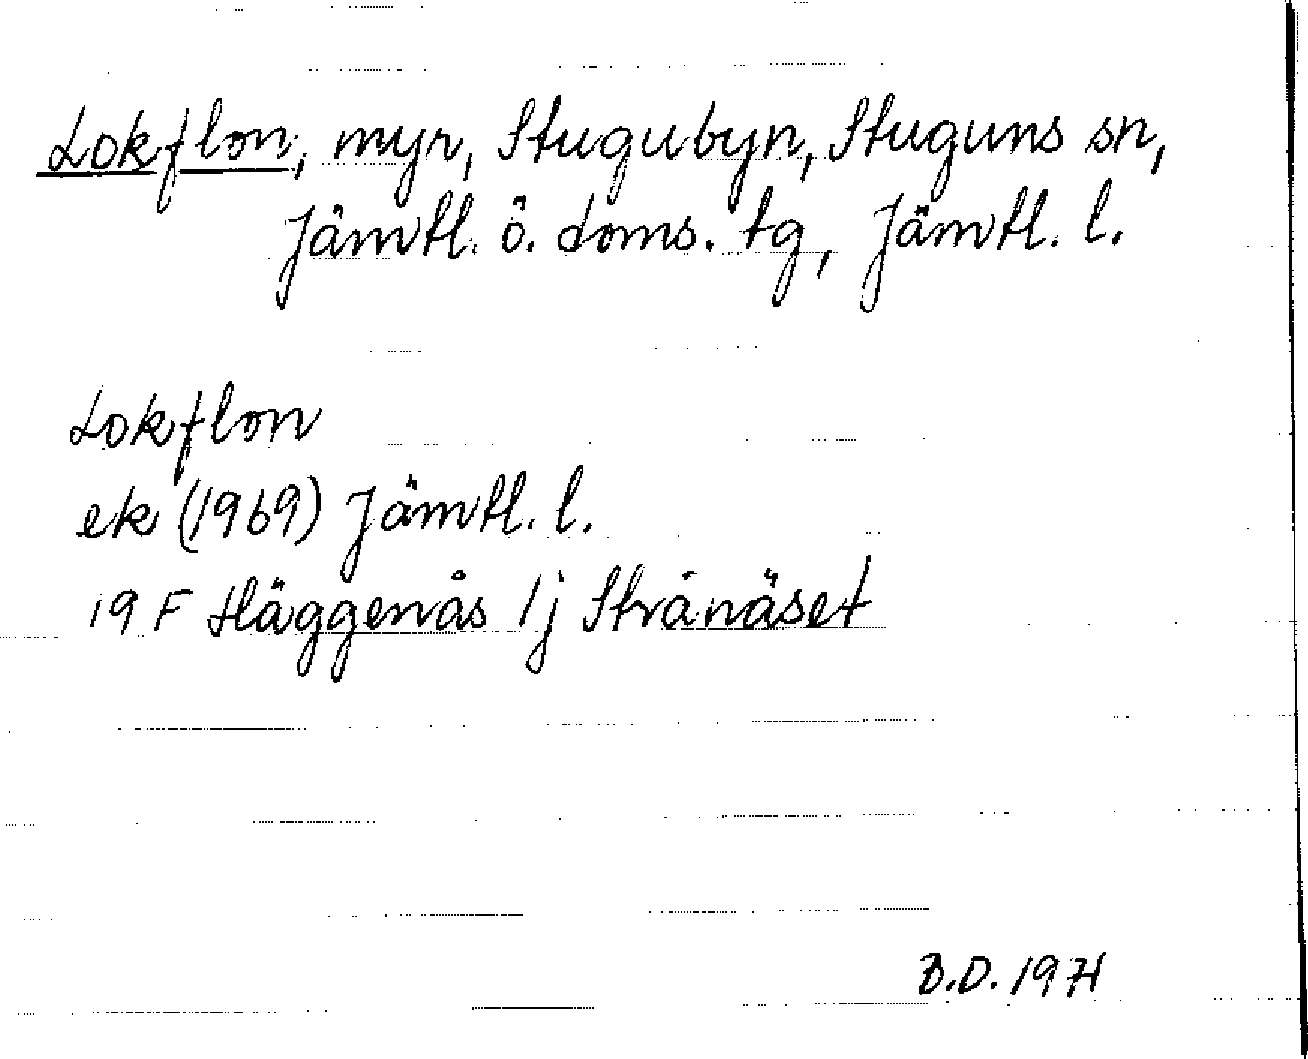 Lokflon, myr, Stugubyn, Stuguns sn,
Jämtl. ö. doms. tg, Jämtl. l.
Lokflon
ek (1969) Jämtl. l.
19 F Häggenås 1j Strånäset
B.D. 1971